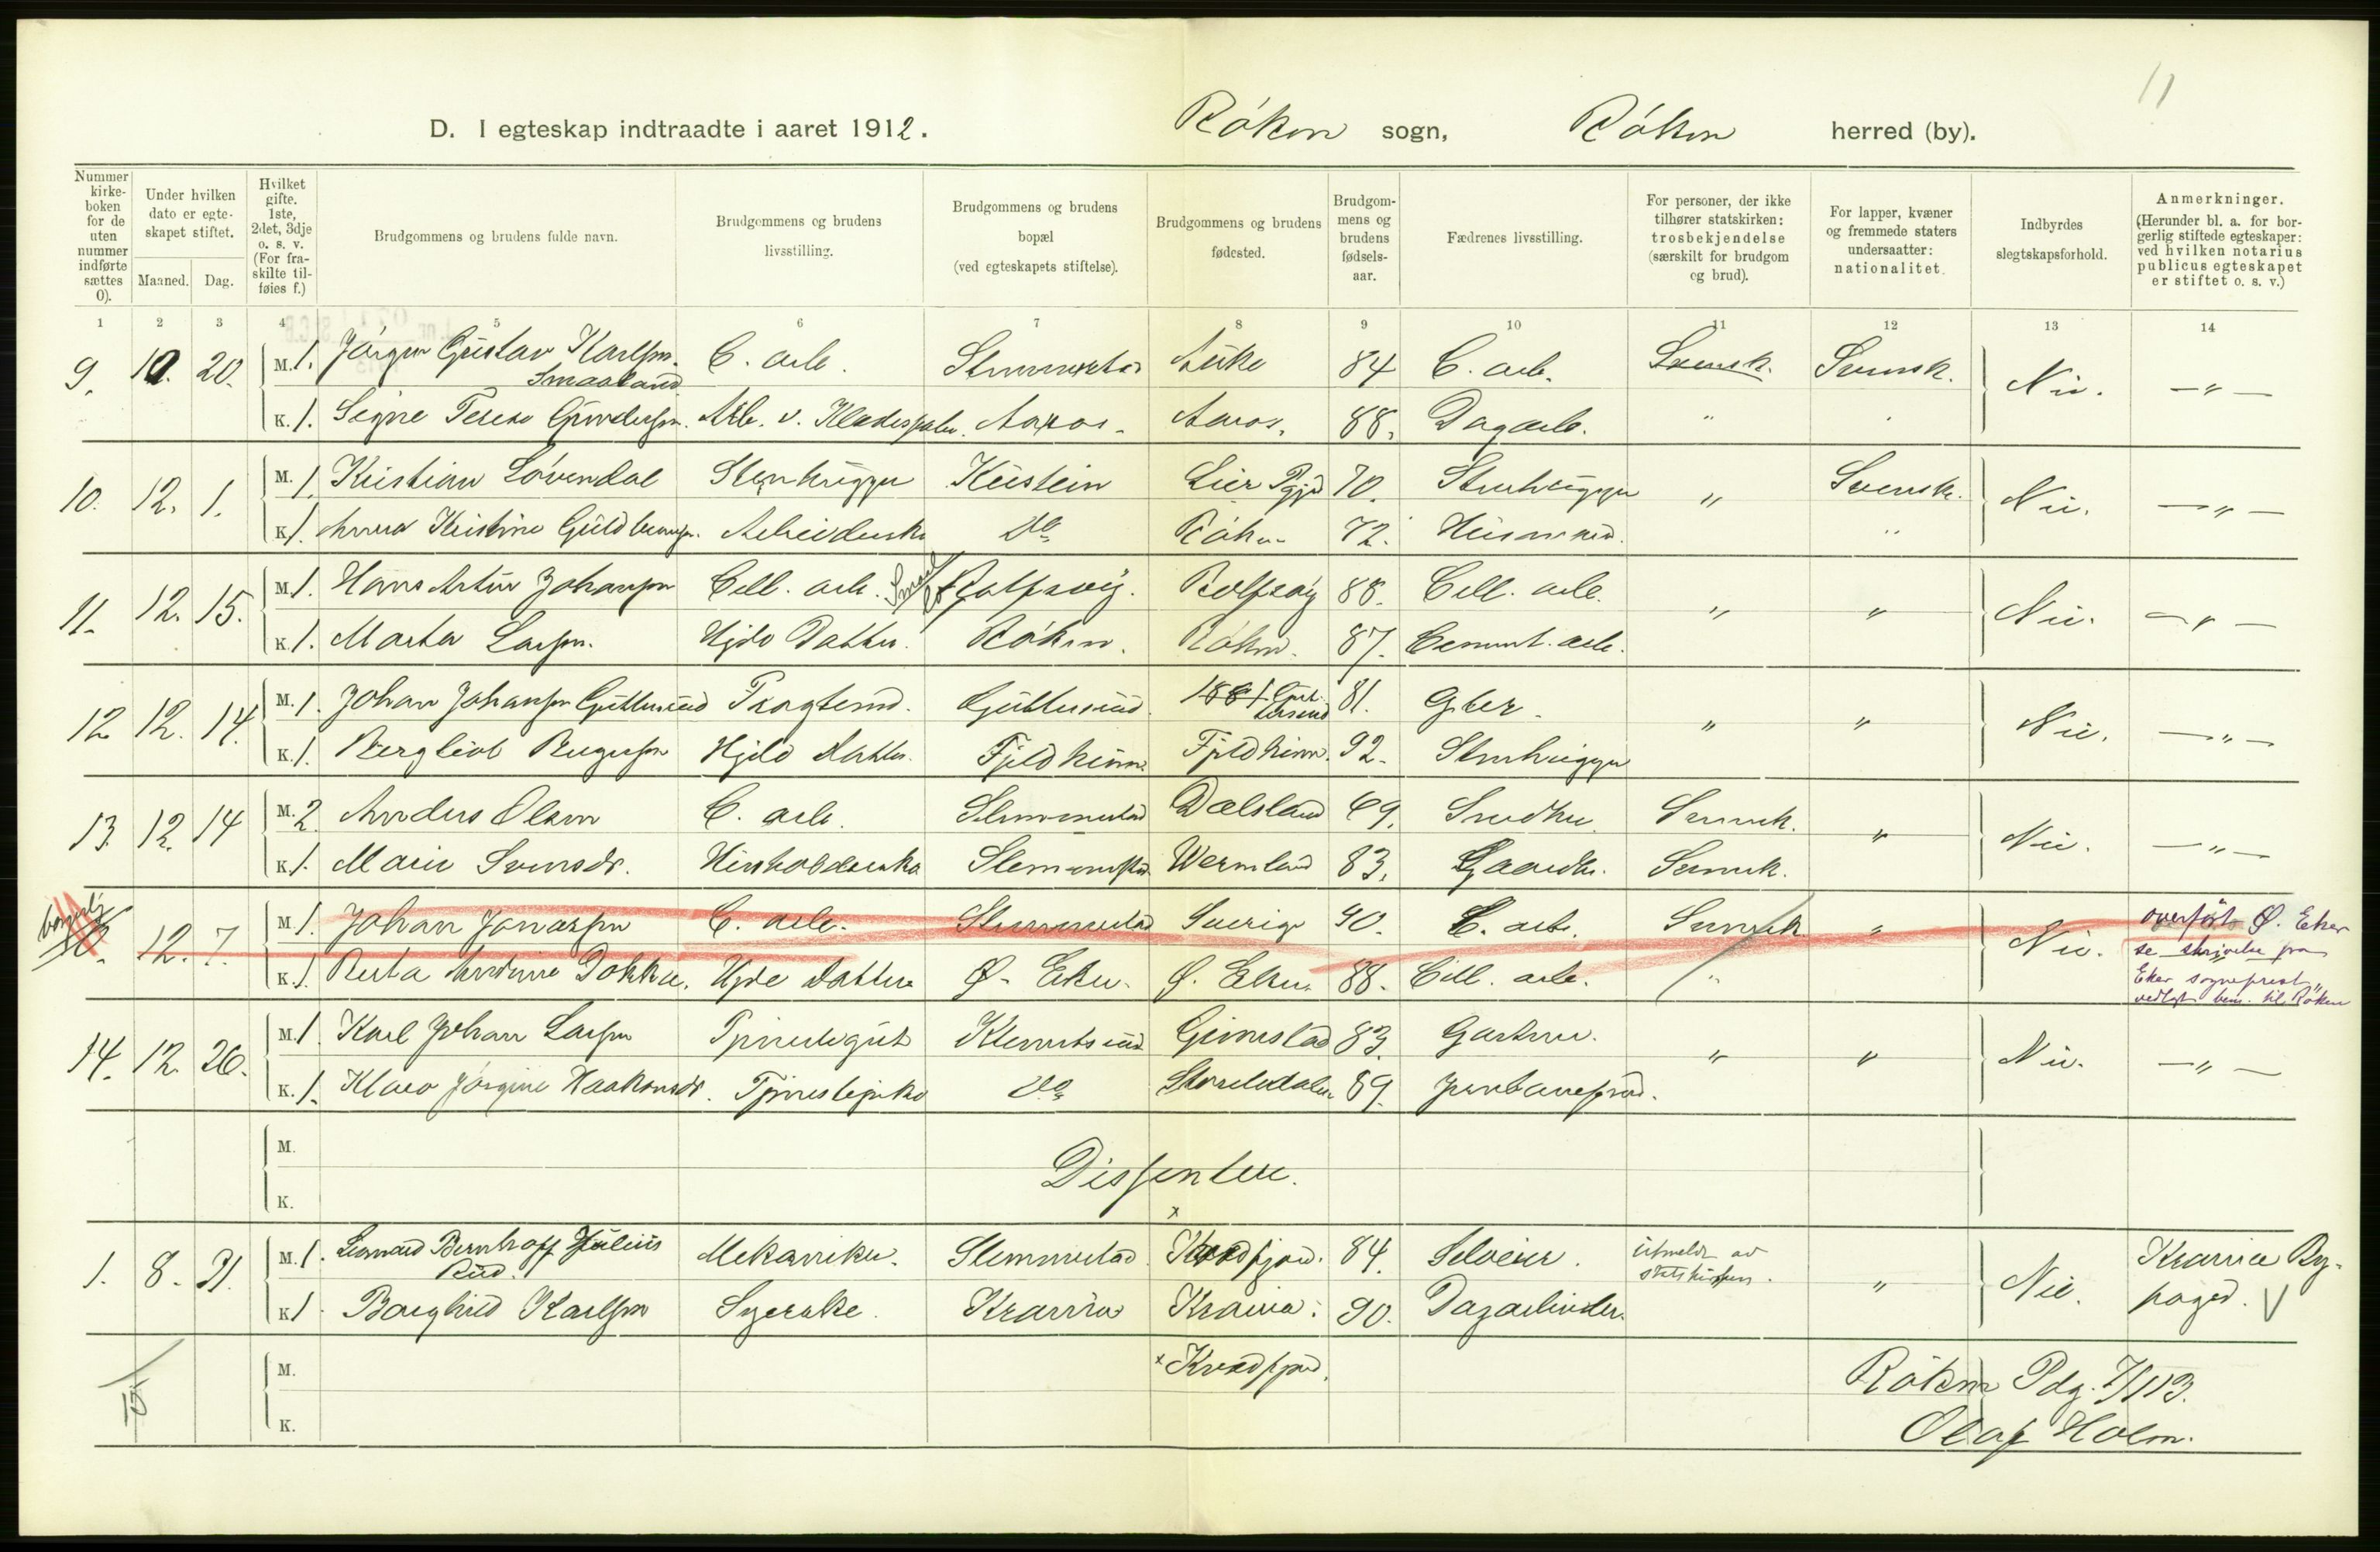 11
D. I egteskap indtraadte i aaret 1912. Røken sogn, Røken herred (by).
Nummer kirkeboken for de uten nummer indførte sættes 0).
Under hvilken dato er egteskapet stiftet.
Maaned. Dag.
Hvilket gifte. 1ste, 2det, 3dje o. s. v. (For fraskilte tilføies f.)
Brudgommens og brudens fulde navn.
Brudgommens og brudens livsstilling.
Brudgommens og brudens bopæl (ved egteskapets stiftelse).
Brudgommens og brudens fødested.
Brudgommens og brudens fødselsaar.
Fædrenes livsstilling.
For personer, der ikke tilhører statskirken: trosbekjendelse (særskilt for brudgom og brud).
For lapper, kvæner og fremmede staters undersaatter: nationalitet.
Indbyrdes slegtskapsforhold.
Anmerkninger. (Herunder bl. a. for borgerlig stiftede egteskaper: ved hvilken notarius publicus egteskapet er stiftet o. s. v.)
1 2 3 4 5 6 7 8 9 10 11 12 13 14
9. 10. 20. M. 1. Jørgen Gustav Karlsen. C. arb. Slemmestad 84 C. arb. Svensk. Svensk. Nei. —"—
Smaaland
K. 1. Signe Terese Gundersen. Arb. v. Aaros. Aaros. 88. Dagarb. "
10. 12. 1. M. 1. Kristian Løvendal Stenhugger Lier Pgjd 70. Stenhugger " Svensk. Nei. —"—
K. 1. Anna Kristine Guldbransen. Arbeiderske Do Røken 72. Husmand. "
11. 12. 15. M. 1. Hans Artur Johansen Cell. arb. Rolfsøy. Rolfsøy 88. Cell. arb. " " Nei. —"—
K. 1. Marta Larsen. Hjde Datter. Røken. Røken. 87. Cement. arb.
12 12. 14. M. 1. Johan Johansen Guttersrud Fragtemd. Guttersrud 1881 81. Gber. " " Nei. —"—
K. 1. Bergliot Birgersen Hjde datter. Fjeldheim. Fjeldheim. 92. Stenhugger
13. 12. 14 M. 2 Anders Olsen C. arb. Slemmestad Dalsland 69. Snedker. Svensk. " Nei. —"—
K. 1. Marie Svensdr. Husholderske Slemmestad Wermland 83. Gaardbr. Svensk.
12. 7. M. 1. Johan Jonassen C. arb. Slemmestad Sverige 90. C. arb. Svensk " Nei. overført Ø. Eker
se skrivelse fra
K. 1. Berta Andrine Dokka. Hjde datter Ø. Eker. Ø. Eker. 88. Cell. arb. " Eker sogneprest,
vedlagt bem. til Røken
14. 12. 26. M. 1. Karl Johan Larsen Tjenestegut Klemetsrud Gimestad 83. Gartner. " " Nei. —"—
K. 1. Klara Jørgine Haakonsdr. Tjenestepike Do 89. Jernbanefmd.
M.
K.
Dissentere.
1. 8. 31. M. 1. Leonard Bernhoff Julius Mekaniker. Slemmestad x Kvædfjord. 84. Selveier. Utmeldt av " Nei. Krania By-
Rud. statskirken.
K. 1. Borghild Karlsen Syerske. Krania Krania. 90. Dagarbeider. foged. V
M. x Kvædfjord. Røken Pdg. 7/1 13.
K. Olaf Holm.
15